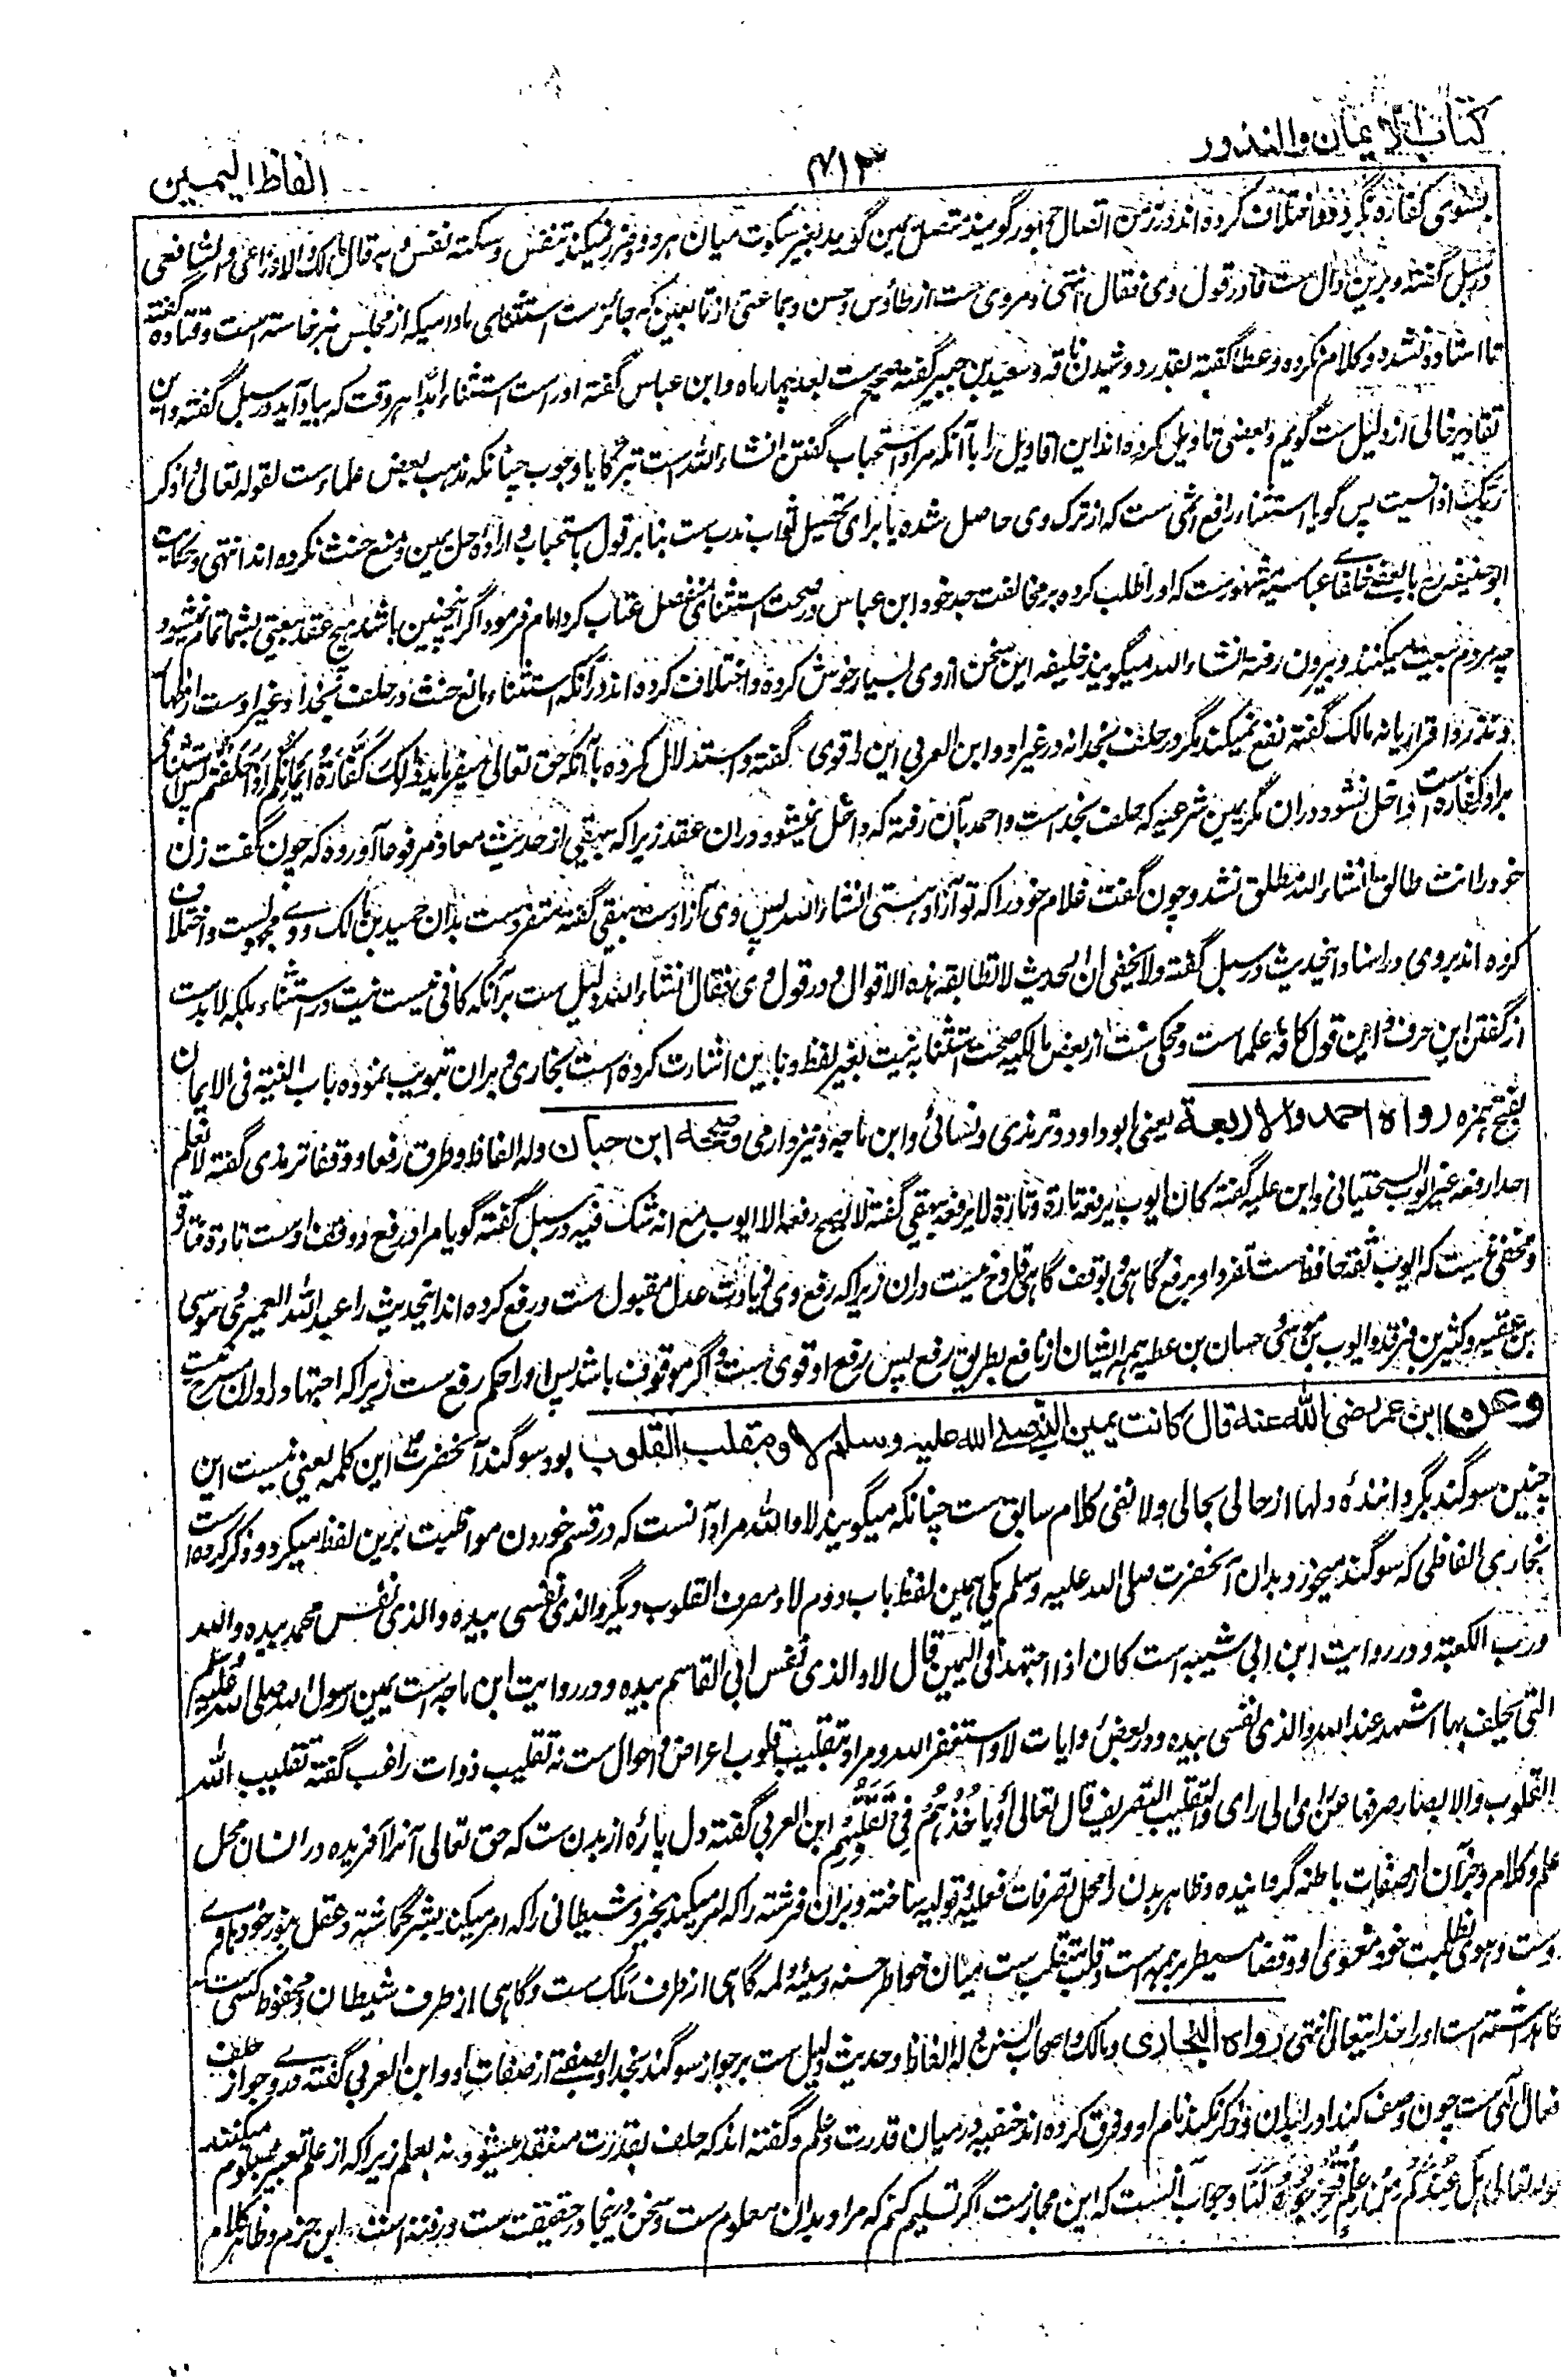 کتاب الایمان والنذور
۴۱۳
الفاظ الیمین
بسوی کفاره نگردد و اختلاف کرده‌اند در زمن اتصال جمهور گویند متصل یمین گوید بغیر سکوت میان هر دو و ضرر نمیکند تنفس و سکته نفس و به قال مالک والاوزاعی والشافعی
در سبل گفته و برین دال ست فا در قول وی فقال انتهی و مروی ست از طاؤس و حسن و جماعتی از تابعین که جائز ست استثنای مادامیکه از مجلس برنخاسته است و قتاده گفته
تا استاده نشده و کلام نکرده و عطا گفته بقدر دوشیدن ناقه و سعید بن جبیر گفته صحیح ست بعد چهار ماه و ابن عباس گفته او راست استثناء ابدا هر وقت که بیاد آید در سبل گفته و این
تقادیر خالی از دلیل ست گویم و بعضی تاویل کرده‌اند این اقاویل را باآنکه مراد استحباب گفتن انشاء الله است تبرکا یا وجوب چنانکه مذهب بعض علماء ست لقوله تعالی واذکر
ربک اذا نسیت پس گویا استثناء رافع اثمی ست که از ترک وی حاصل شده یا برای تحصیل ثواب ندب ست بنا بر قول باستحباب و اراده حل یمین و منع حنث نکرده‌اند انتهی و حکایت
ابوحنیفه رح با بعضے خلفاے عباسیه مشهورست که او را طلب کرده بر مخالفت جد خود ابن عباس در صحت استثنای منفصل عتاب کرد امام فرمود اگر اینچنین باشد هیچ عقد بیعتی بشما تمام نشود
چه مردم بیعت میکنند و بیرون رفته انشاء الله میگویند خلیفه این سخن از وی بسیار خوش کرده و اختلاف کرده‌اند در آنکه استثناء مانع حنث در حلف بخدا و غیر اوست از ظهار
و نذر و اقرار یا نه مالک گفته نفع نمیکند مگر در حلف بخدا نه در غیر او و ابن العربی این را قوی گفته و استدلال کرده باآنکه حق تعالی میفرماید ذٰلک کفارة ایمانکم اذا حلفتم پس استثنای
برادر کفاره است داخل نشود در ان مگر یمین شرعیه که حلف بخداست و احمد بآن رفته که داخل نمیشود در ان عقد زیراکه بیهقی از حدیث معاذ مرفوعا آورده که چون گفت زن
خود را انت طالق انشاء الله مطلق نشد و چون گفت غلام خود را که تو آزاد هستی انشاء الله پس وی آزادست بیهقی گفته متفردست بدان حمید بن مالک و وے مجهولست و اختلاف
کرده‌اند بر وی در اسناد اینحدیث در سبل گفته ولا یخفی ان الحدیث لا تطابقه هذه الاقوال و در قول وی فقال انشاء الله دلیل ست برآنکه کافی نیست نیت در استثناء بلکه لابدست
از گفتن این حرف و این قول کافه علماست و محکی ست از بعض مالکیه صحت استثنا به نیت بغیر لفظ و باین اشارت کرده است بخاری و بران تبویب نموده باب النیة فی الایمان
بفتح همزه رواه احمد والاربعة یعنی ابوداود و ترمذی و نسائی و ابن ماجه و نیز دارمی وصححه ابن حبان وله الفاظ و طرق رفعا و وقفا ترمذی گفته لا نعلم
احدا رفعه غیر ایوب السختیانی و ابن علیه گفته کان ایوب یرفعه تارة و تارة لا یرفعه بیهقی گفته لا یصح رفعه الا ایوب مع انه شک فیه در سبل گفته گویا مراد رفع و وقف اوست تارة فتارة
و مخفی نیست که ایوب ثقه حافظ ست تفرد او برفع گاهی و بوقف گاهی قادح نیست دران زیراکه رفع وی زیادت عدل مقبول ست و رفع کرده‌اند اینحدیث را عبدالله العمری و موسی
بن عقبه و کثیر بن فرقد و ایوب بن موسی و حسان بن عطیه همه ایشان از نافع بطریق رفع پس رفع او قوی ست و اگر موقوف باشد پس او را حکم رفع ست زیراکه اجتهاد را دران مسرح نیست
وعن ابن عمر رضی الله عنه قال کانت یمین النبی صلے الله علیه وسلم لا ومقلب القلوب بود سوگند آنحضرت این کلمه یعنی نیست این
چنین سوگند بگرداننده دلها از حالی بحالی ولا نفی کلام سابق ست چنانکه میگویند لا والله مراد آنست که در قسم خوردن مواظبت برین لفظ میکرد و ذکر کرده است
بخاری الفاظی که سوگند میخورد بدان آنحضرت صلی الله علیه وسلم یکی همین لفظ باب دوم لا ومصرف القلوب دیگر والذی نفسی بیده والذی نفس محمد بیده والله
ورب الکعبة و در روایت ابن ابی شیبه است کان اذا اجتهد فی الیمین قال لا والذی نفس ابی القاسم بیده و در روایت ابن ماجه است یمین رسول الله صلی الله علیه وسلم
التی یحلف بها اشهد عند الله والذی نفسی بیده و در بعض روایات لا واستغفر الله و مراد بتقلیب قلوب اعراض و احوال ست نه تقلیب ذوات راغب گفته تقلیب الله
القلوب والابصار صرفها عن رای الی رای والتقلیب التصریف قال تعالی أو یأخذهم فی تقلبهم ابن العربی گفته دل پارهٔ از بدن ست که حق تعالی آنرا آفریده در انسان محل
علم و کلام و جز آن از صفات باطنه گردانیده و ظاهر بدن را محل تصرفات فعلیه و قولیه ساخته و بران فرشته را که امر میکند بخیر و شیطانی را که امر میکند بشر گماشته و عقل بنور خود هادی
اوست و هوی بظلمت خود مغوی او و قضا مسیطر بر همه است و قلب متقلب ست میان خواطر حسنه و سیئه و لمه گاهی از طرف ملک ست و گاهی از طرف شیطان و محفوظ کسی ست که
نگاه داشته است او را خدا یتعالی انتهی رواه البخاری و مالک و اصحاب السنن وله الفاظ و حدیث دلیل ست بر جواز سوگند بخدا و بصفتے از صفات او و ابن العربی گفته در وے جواز حلف
بافعال الهی ست چون وصف کند او را بدان و ذکر نکند نام او و فرق کرده‌اند حنفیه در میان قدرت و علم و گفته‌اند که حلف بقدرت منعقد میشود و نه بعلم زیراکه از علم تعبیر بمعلوم میکنند
کقوله تعالی هل عندکم من علم فتخرجوه لنا و جواب آنست که این مجازست اگر تسلیم کنیم که مراد بدان معلوم ست و سخن در اینجا در حقیقت ست و رفته است ابن حزم و ظاهر کلام